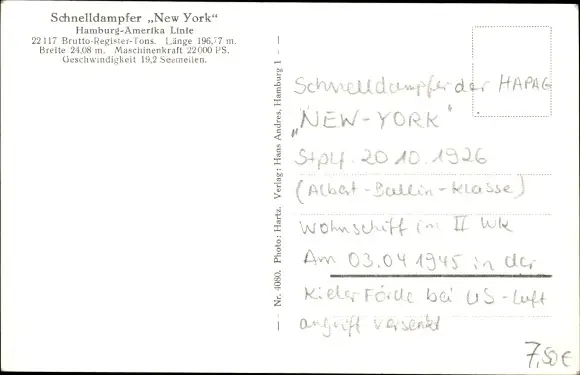 Schnelldampfer „New York“
Hamburg-Amerika Linie
22117 Brutto-Register-Tons. Länge 196,77 m.
Breite 24,08 m. Maschinenkraft 22000 PS.
Geschwindigkeit 19,2 Seemeilen.
— Nr. 4080. Photo: Hartz. Verlag: Hans Andres, Hamburg 1 —
Schnelldampfer der HAPAG
„NEW-YORK“
Stplf. 20 10. 1926
(Albert-Ballin-Klasse)
Wohnschiff im II WK
Am 03.04 1945 in der
Kieler Förde bei US-Luft
angriff versenkt
7,50€